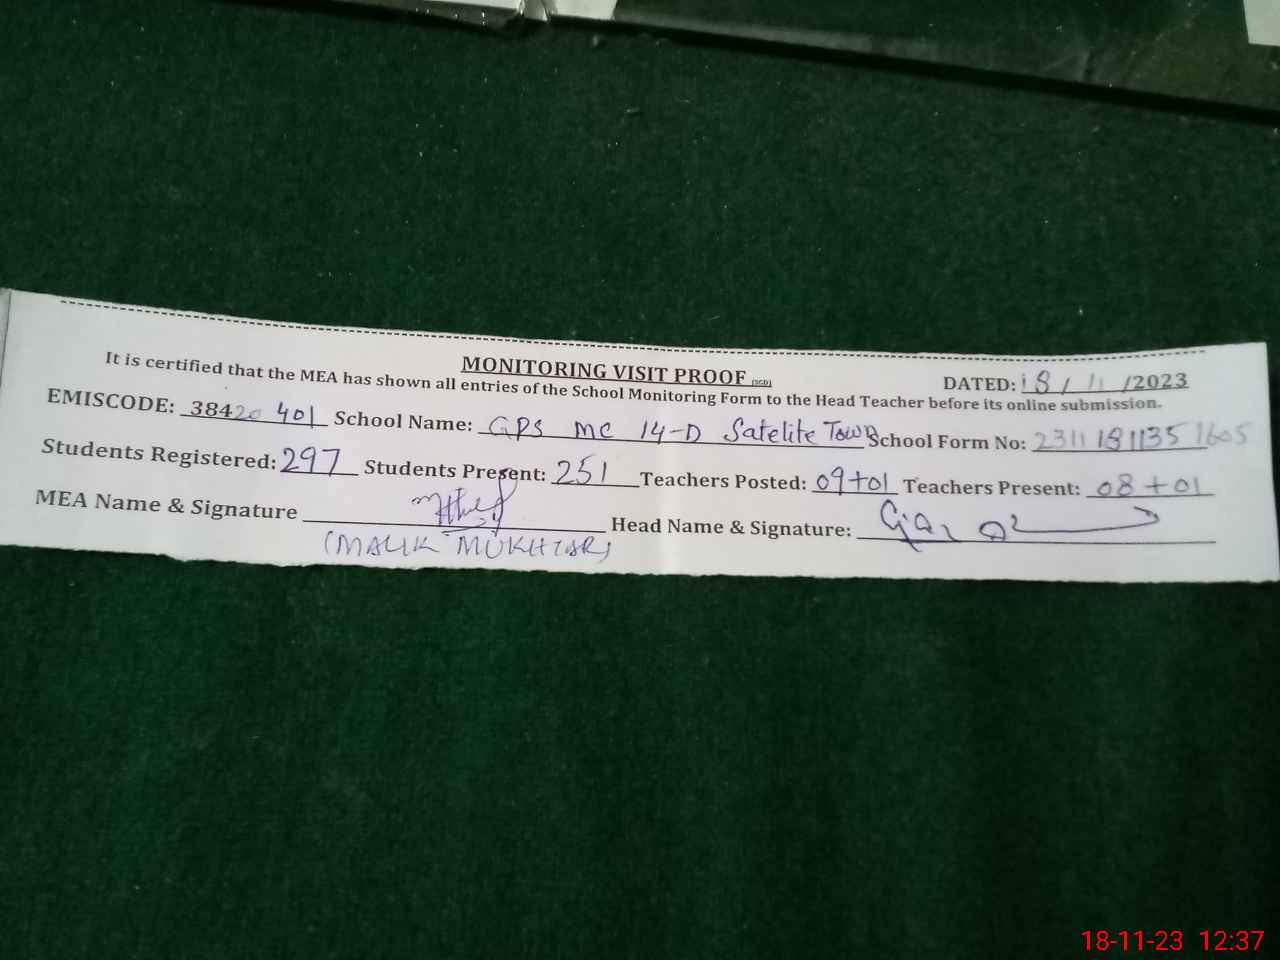 MONITORING VISIT PROOF (SGD) DATED: 18/11/2023
It is certified that the MEA has shown all entries of the School Monitoring Form to the Head Teacher before its online submission.
EMISCODE: 38420401 School Name: GPS MC 14-D Satelite Town School Form No: 23111811351605
Students Registered: 297 Students Present: 251 Teachers Posted: 09+01 Teachers Present: 08+01
MEA Name & Signature Head Name & Signature:
(MALIK MUKHTAR)
18-11-23 12:37